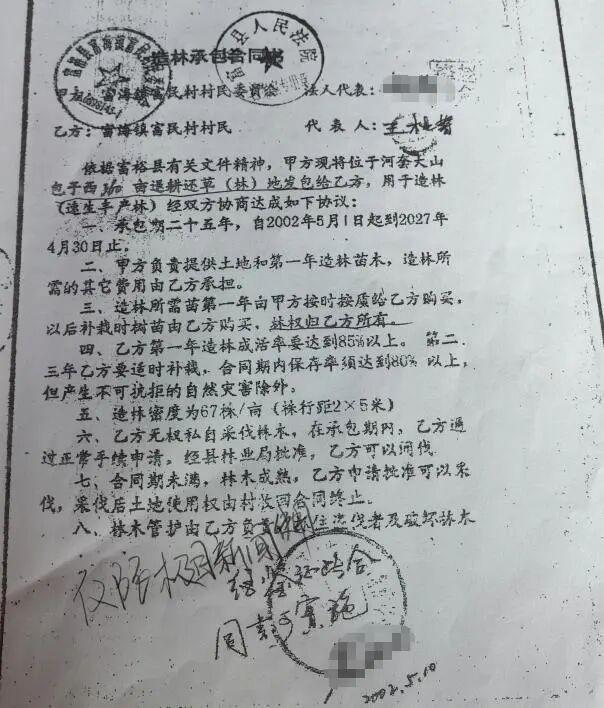 造林承包合同书
甲方：富海镇富民村村民委员会 法人代表：
乙方：富海镇富民村村民 代表人：王
依据富裕县有关文件精神，甲方现将位于河套大山
包子西360亩退耕还草（林）地发包给乙方，用于造林
（速生丰产林）经双方协商达成如下协议：
一、承包期二十五年，自2002年5月1日起到2027年
4月30日止。
二、甲方负责提供土地和第一年造林苗木，造林所
需的其它费用由乙方承担。
三、造林所需苗第一年由甲方按时按质给乙方购买，
以后补栽时树苗由乙方购买，林权归乙方所有。
四、乙方第一年造林成活率要达到85%以上。第二、
三年乙方要适时补栽，合同期内保存率须达到80%以上，
但产生不可抗拒的自然灾害除外。
五、造林密度为67株/亩（株行距2×5米）
六、乙方无权私自采伐林木，在承包期内，乙方通
过正常手续申请，经县林业局批准，乙方可以间伐
七、合同期未满，林木成熟，乙方申请批准可以采
伐，采伐后土地使用权由村收回合同终止。
八、林木管护由乙方负责 住盗伐者及破坏林木
仅限极目新闻
同意 实施
2002.5.10
富裕县人民法院